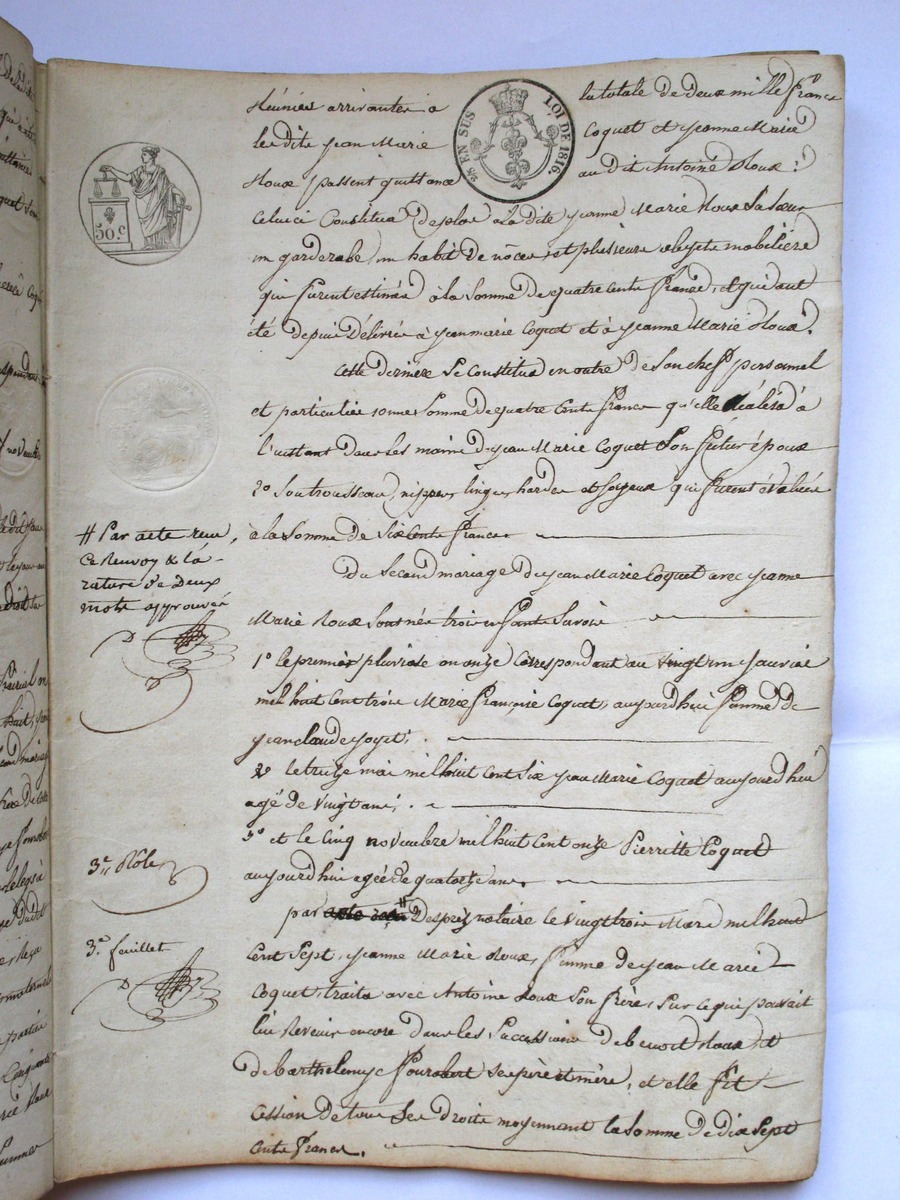 Réunies arrivantes à la totale de deux mille francs
les dits Jean Marie Coquet et Jeanne Marie
Roux passent quittance au dit Antoine Roux :
EN SUS LOI DE 1816.
50.C
Celui ci Constitua de plus à la dite Jeanne Marie Roux sa sœur
un garderobe, un habit de nôces, et plusieurs objets mobiliers
qui furent estimés à la somme de quatre cents francs, et qui ont
été depuis délivrés à Jean Marie Coquet et à Jeanne Marie Roux.
Cette dernière se Constitua en outre de son chef personnel
et particulier 1o une somme de quatre cents francs qu'elle réalisa à
l'instant dans les mains de Jean Marie Coquet son futur époux
2o son trousseau, nippes, linges, hardes et joyaux qui furent évalués
à la somme de six cents francs.
Du second mariage de Jean Marie Coquet avec Jeanne
Marie Roux sont nés trois enfants Savoir
1o le premier pluviose an onze correspondant au vingt un Janvier
mil huit cent trois Marie Françoise Coquet, aujourd'hui femme de
Jean Claude Joyet;
2o le treize mai mil huit cent six Jean Marie Coquet aujourd'hui
agé de vingt ans;
3o et le cinq novembre mil huit cent onze Pierrette Coquet
aujourd'hui agée de quatorze ans.
par acte reçu # Desprez notaire le vingt trois Mars mil huit
cent sept, Jeanne Marie Roux, femme de Jean Marie
Coquet, traita avec Antoine Roux son frère, sur ce qui pouvait
lui Revenir encore dans les successions de benoit Roux et
de barthelemye ses père et mère, et elle fit
cession de tous ses droits moyennant la somme de dix sept
cents francs.
# Par acte reçu,
Ce Renvoy & la
rature de Deux
mots approuvés
D
3.e Rôle
3.e feuillet
D